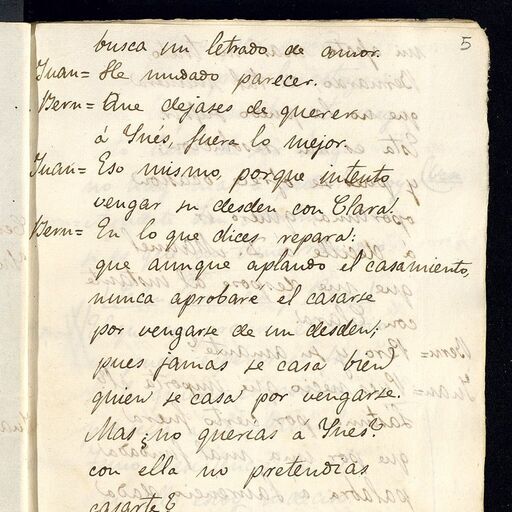 5
busca un letrado de amor.
Juan= He mudado parecer.
Bern= Que dejases de querer
á Ynés, fuera lo mejor.
Juan= Eso mismo, porque intento
vengar su desden con Clara.
Bern= En lo que dices repara:
que aunque aplaudo el casamiento,
nunca aprobare el casarse
por vengarse de un desden;
pues jamas se casa bien
quien se casa por vengarse.
Mas ¿no querias a Ynes?
con ella no pretendias
casarte?